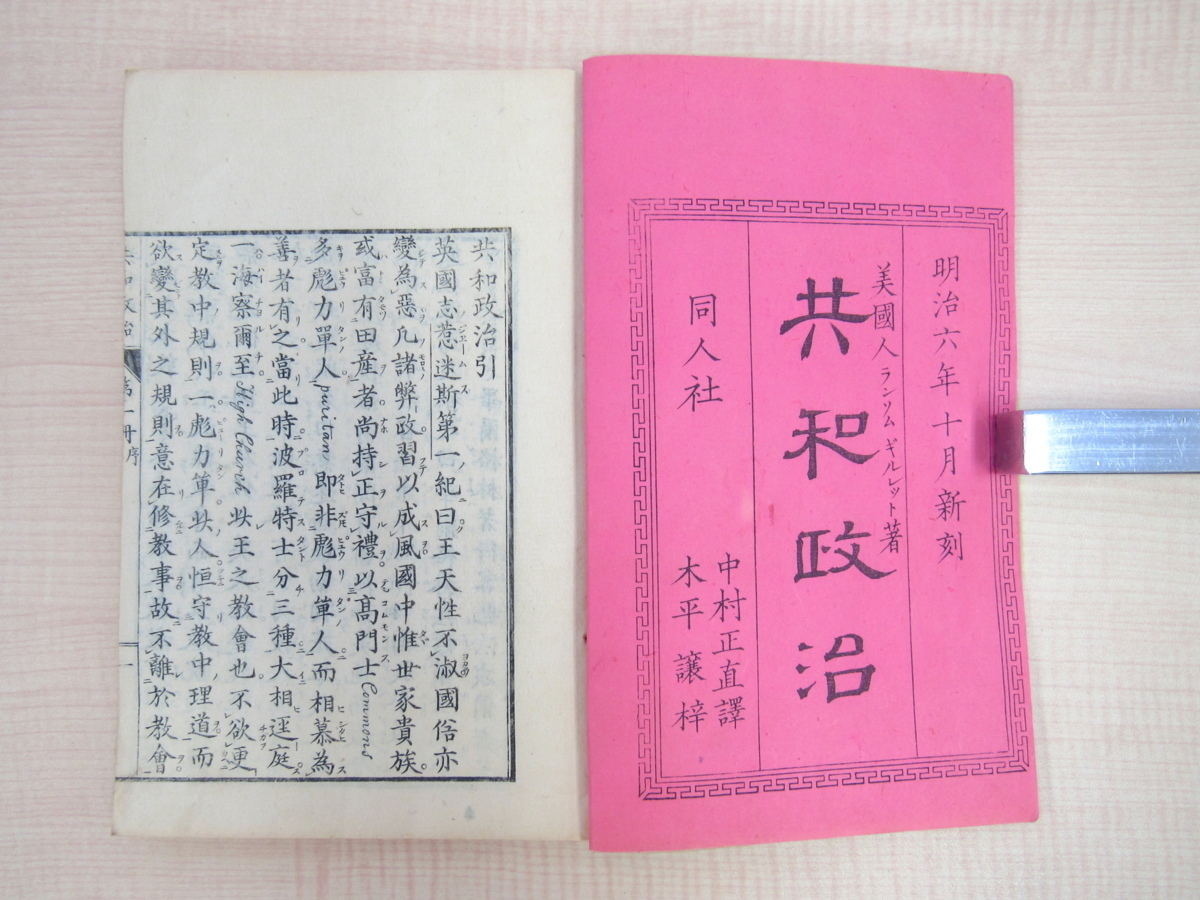 明治六年十月新刻
美國人ランソム ギルレット著
共和政治
同人社
中村正直譯
木平讓梓
共和政治引
英國志惹迷斯第一紀曰王天性不淑國俗亦
變為惡凢諸弊政習以成風國中惟世家貴族
或富有田産者尚持正守禮以髙門士Commons
多彪力單人puritan即非彪力單人而相慕為
善者有之當此時波羅特士分三種大相逕庭
一海察爾至High Church此王之教會也不欲更
定教中規則一彪力單此人恒守教中理道而
欲變其外之規則意在修教事故不離於教會
共和政治 第一冊序 一